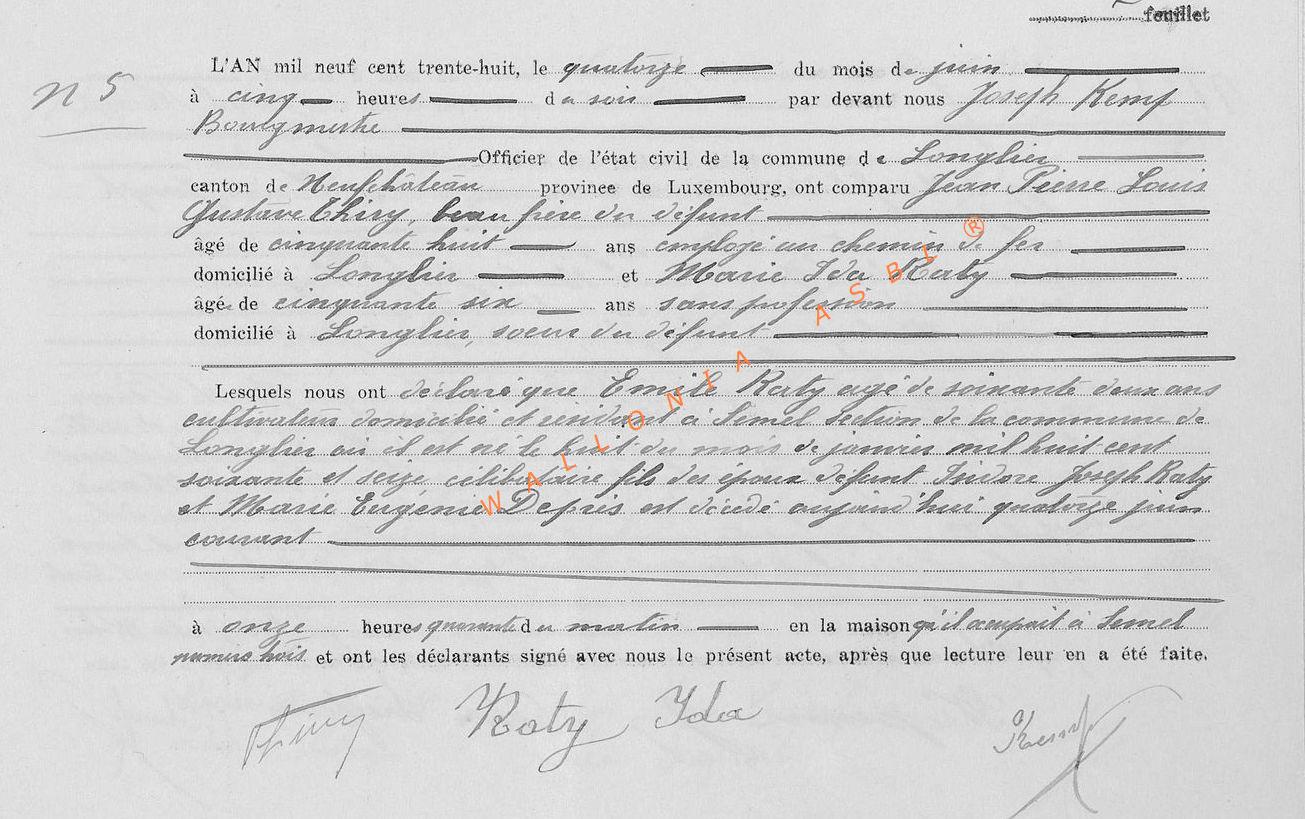 feuillet
n 5
L'AN mil neuf cent trente-huit, le quatorze du mois de juin
à cinq heures du soir par devant nous Joseph Kemp
Bourgmestre
Officier de l'état civil de la commune de Longlier
canton de Neufchâteau province de Luxembourg, ont comparu Jean Pierre Louis
Gustave Thiry, beau frère du défunt
âgé de cinquante huit ans employé au chemin de fer
domicilié à Longlier et Marie Ida Raty
âgé de cinquante six ans sans profession
domicilié à Longlier, soeur du défunt
Lesquels nous ont déclaré que Emile Raty agé de soixante deux ans
cultivateur domicilié et résidant à Semel section de la commune de
Longlier où il est né le huit du mois de janvier mil huit cent
soixante et seize, célibataire fils des époux défunt Isidore Joseph Raty
et Marie Eugénie Depris est décédé aujourd'hui quatorze juin
courant
à onze heures quarante du matin en la maison qu'il occupait à Semel
numéro trois et ont les déclarants signé avec nous le présent acte, après que lecture leur en a été faite.
Thiry Raty Ida Kemp
WALLONIA ASBL ®